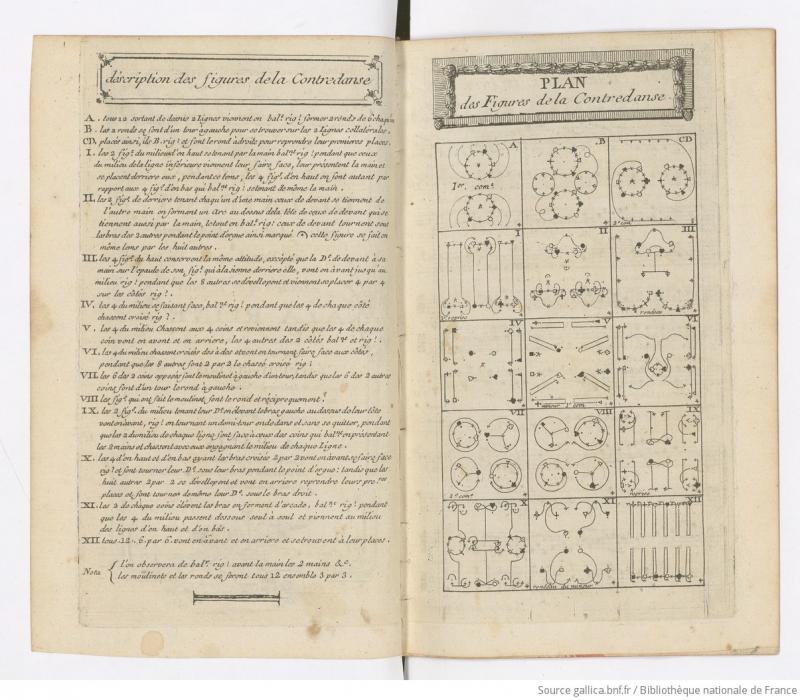 description des figures de la Contredanse
A. tous 12 sortant de dessis 2 lignes viennent en bal.t rig! former 2 ronds de 6 chaqun
B. les 2 ronds se font d'un tour agauche pour se trouver sur les 2 lignes collatérales.
CD. placés ainsi, ils B. rig! et font le rond à droite pour reprendre leur premieres places.
I. les 2 fig.s du milieu d'en haut se tenant par la main bal.nt rig! pendant que ceux
du milieu de la ligne inférieure viennent leur faire face, leur présentent la main et
se placent derriere eux, pendant ce tems, les 4 fig.s d'en haut en font autant par
rapport aux 4 fig.s d'en bas qui bal.nt rig! se tenant de même la main.
II. les 2 fig.s de derriere tenant chaqu'un d'une main ceux de devant se tiennent de
l'autre main en formant un arc au dessus de la tête de ceux de devant qui se
tiennent aussi par la main, le tout en bal.t rig! ceux de devant tournent sous
les bras des 2 autres pendant le point d'orgue ainsi marqué cette figure se fait en
même tems par les huit autres.
III. les 4 fig.s du haut conservent la même attitude, excépté que la D.e de devant à sa
main sur l'epaule de son fig.t qui à la sienne derriere elle, vont en avant jusqu'au
milieu rig! pendant que les 8 autres se dévellopent et viennent se placer 4 par 4
sur les côtés rig!.
IV. les 4 du milieu se faisant face, bal.nt rig! pendant que les 4 de chaque côté
chassent croisé rig!.
V. les 4 du milieu Chassent aux 4 coins et reviennent tandis que les 4 de chaque
coin vont en avant et en arriere, les 4 autres des 2 côtés bal.nt et rig!.
VI. les 4 du milieu chassent croisés dos à dos et vont en tournant faire face aux côtés,
pendant que les 8 autres font 2 par 2 le chassé croisé rig!
VII. les 6 des 2 coins opposés font le moulinet à gauche d'un tour, tandis que les 6 des 2 autres
coins font d'un tour le rond à gauche.
VIII. les fig.s qui ont fait le moulinet, font le rond et réciproquement.
IX. les 2 fig.s du milieu tenant leur D.e en élevant le bras gauche au dessus de leur tête
vont en avant, rig! en tournant un demi tour en dedans et sans se quitter, pendant
que les 2 du milieu de chaque ligne font face à ceux des coins qui bal.nt en présentant
les 2 mains et chassent avec eux en gagnant le milieu de chaque Ligne.
X. les 4 d'en haut et d'en bas ayant les bras croisés 2 par 2 vont en avant se faire face
rig! et font tourner leur D.e sous leur bras pendant le point d'orgue; tandis que les
huit autres 2 par 2 se dévellopent et vont en arriere reprendre leurs pre.res
places et font tourner de même leur D.e sous le bras droit.
XI. les 2 de chaque coins élevent les bras en forment d'arcade, bal.nt rig! pendant
que les 4 du milieu passent dessous seul à seul et viennent au milieu
des lignes d'en haut et d'en bas.
XII. tous 12., 6. par 6. vont en avant et en arriere et se trouvent à leur places.
Nota { l'on observera de bal.r rig! avant la main les 2 mains &c.
les moulinets et les ronds se feront tous 12 ensemble 3 par 3.
PLAN
des Figures de la Contredanse
A
.B
CD
1er. com.t
2e com.t
I
II
III
2e reprise
rondeau
IV
V
VI
mineur 1er com.t
VII
VIII
IX
2e com.t
reprise
X
XI
XII
rondeau du mineur
Source gallica.bnf.fr / Bibliothèque nationale de France